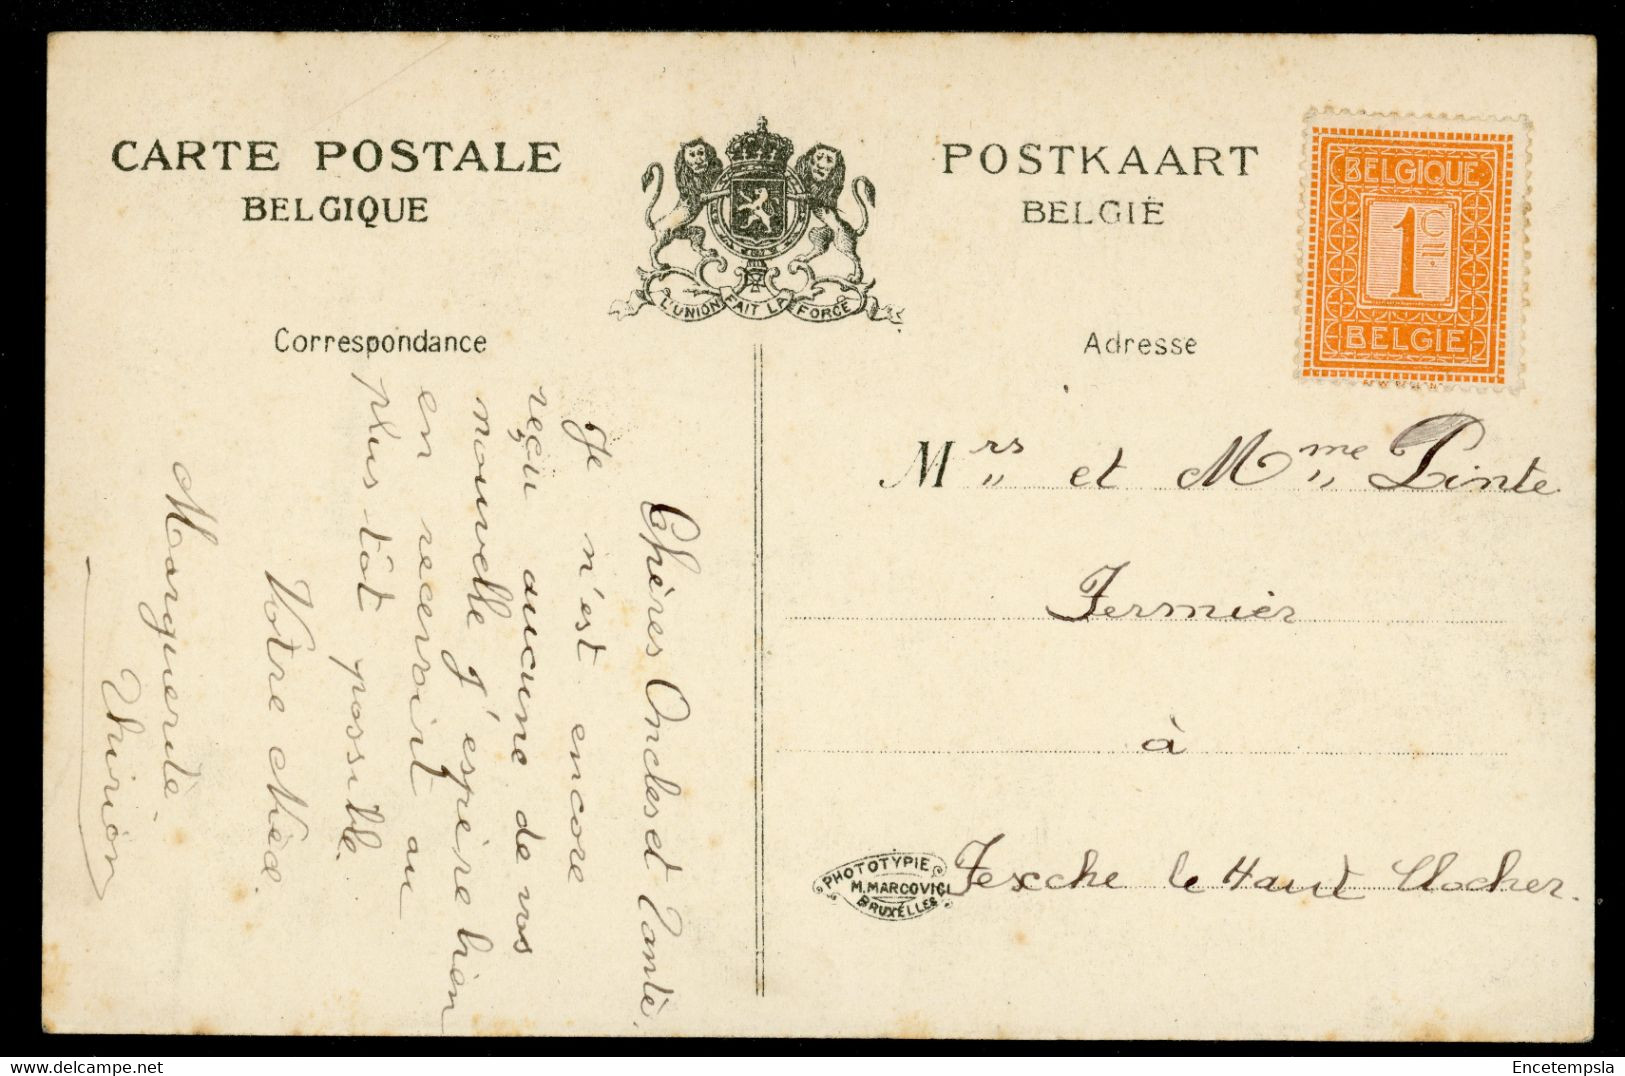 CARTE POSTALE
BELGIQUE
POSTKAART
BELGIË
L'UNION FAIT LA FORCE
BELGIQUE
1 C
BELGIË
Correspondance
Adresse
Chères Oncles et Tante.
Je n'est encore
reçu aucune de vos
nouvelle j'espère bien
en recevoir au
plus tôt possible.
Votre Nièce.
Marguerite.
Thirion
Mrs et Mme Pinte
Fermier
à
Fesche le Haut Clocher.
PHOTOTYPIE
M. MARCOVICI
BRUXELLES
delcampe.net
Encetempsla